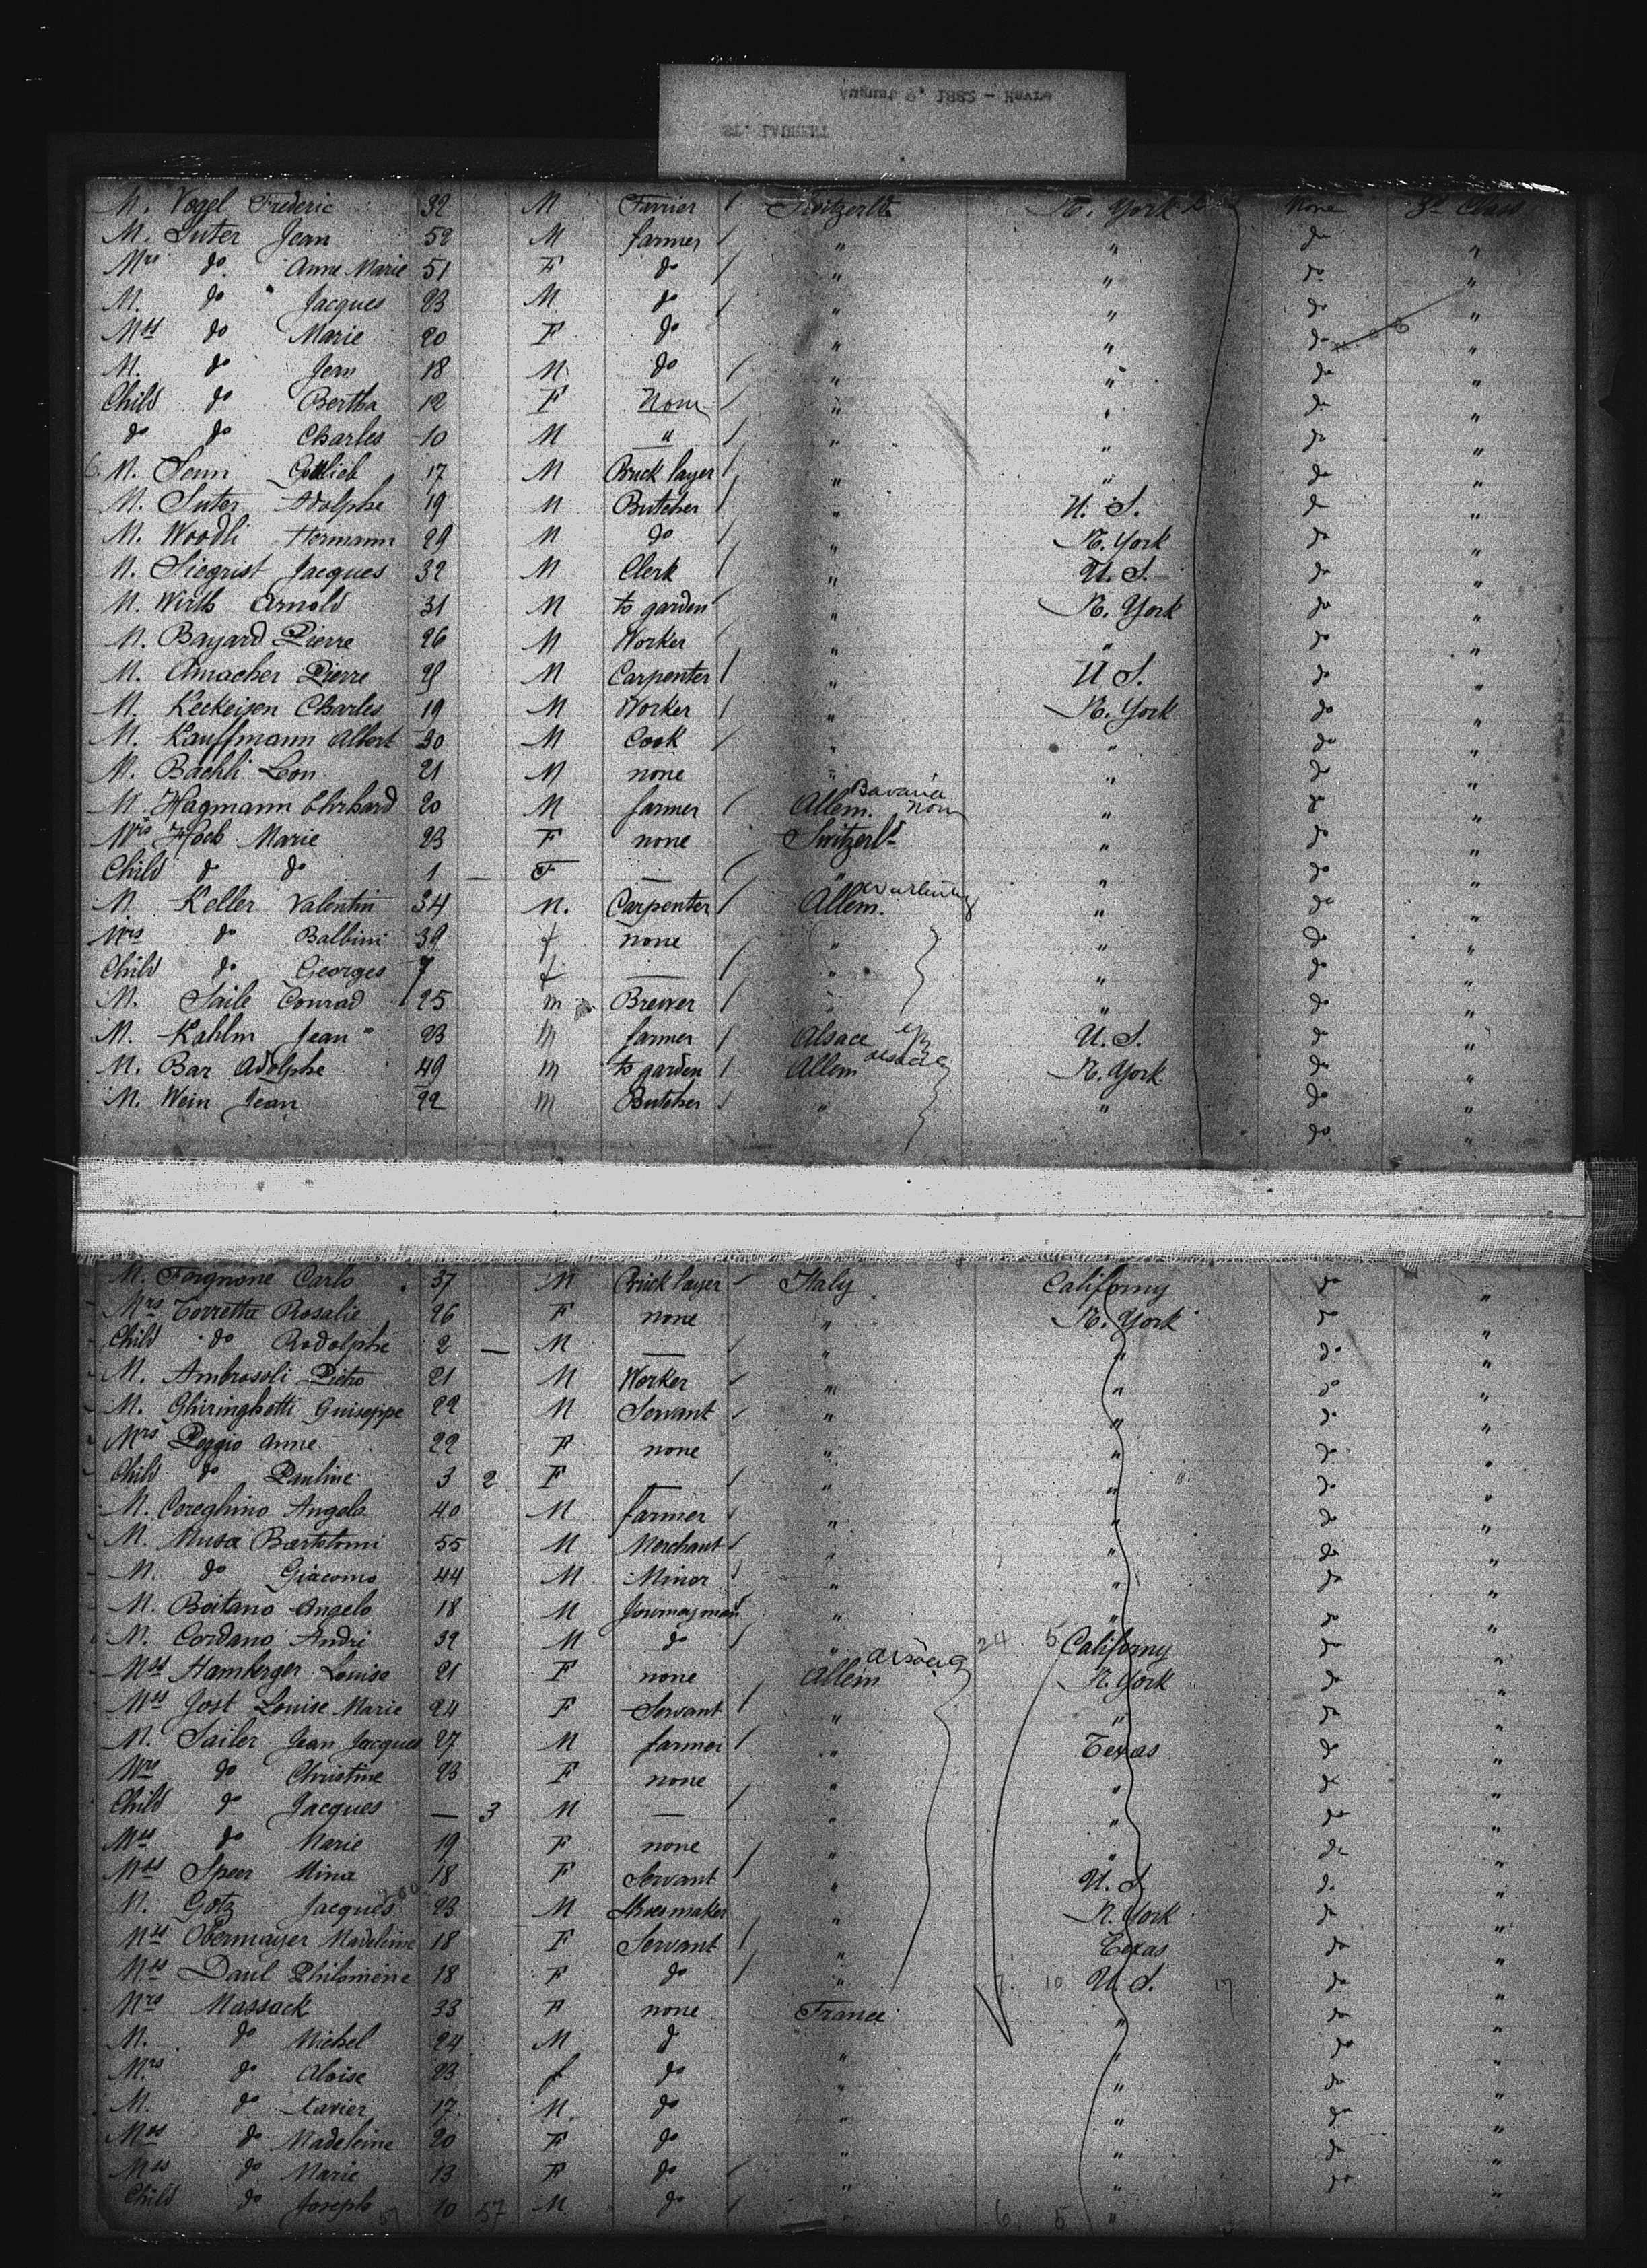 August 9, 1882 - Havre
ST. LAURENT
M. Vogel Frederic 32 M Farrier Switzerld. N. York None 3d Class
M. Suter Jean 52 M farmer " " do "
Mrs do Anne Marie 51 F do " " do "
M. do Jacques 23 M do " " do "
Mss do Marie 20 F do " " do "
M. do Jean 18 M. do " " do "
Child do Bertha 12 F None " " do "
do do Charles 10 M " " " do "
M. Senn Gottlieb 17 M Brick layer " " do "
M. Suter Adolphe 19 M Butcher " U. S. do "
M. Woodli Hermann 29 M do " N. York do "
M. Siegrist Jacques 32 M Clerk " U. S. do "
M. Wirth Arnold 31 M to garden " N. York do "
M. Bayard Pierre 26 M Worker " " do "
M. Amacher Pierre M Carpenter " U S. do "
M. Keckeisen Charles 19 M Worker " N. York do "
M. Kauffmann Albert 30 M Cook " " do "
M. Bachli Leon 21 M none " " do "
M. Hagmann Ehrhard 20 M farmer Allem. Bavaria " do "
Mrs Hoch Marie 23 F none Switzerld " do "
Child do do 1 — F — " " do "
M Keller Valentin 34 M. Carpenter Allem. " do "
Mrs do Balbini 39 f none " " do "
Child do Georges 7 f — " " do "
M. Saile Conrad 25 m Brewer " " do "
M. Kahlm Jean 23 m farmer Alsace U. S. do "
M. Bar Adolphe 49 m to garden Allem Alsace N. York do "
M. Wein Jean 22 m Butcher " " do "
do "
M. Forgnone Carlo 37 M Brick layer Italy Californy do "
Mrs Torretta Rosalie 26 F none " N. York do "
Child do Rodolphe 2 — M — " " do "
M. Ambrosoli Pietro 21 M Worker " " do "
M. Ghiringhetti Guiseppe 22 M Servant " " do "
Mrs Poggio Anne 22 F none " " do "
Child do Pauline 3 2 F — " " do "
M. Cereghino Angelo 40 M farmer " " do "
M. Musa Bartolomi 55 M Merchant " " do "
M. do Giacomo 44 M Minor " " do "
M. Boitano Angelo 18 M Journayman " " do "
M. Cordano Andri 32 M do " 24 5 Californy do "
Mss Hamberger Louise 21 F none Allem Alsace N. York do "
Mss Jost Louise Marie 24 F Servant " " do "
M. Sailer Jean Jacques 27 M farmer " Texas do "
Mrs do Christine 23 F none " " do "
Child do Jacques — 3 M — " " do "
Mss do Marie 19 F none " " do "
Mss Speer Mina 18 F Servant " U. S. do "
M. Gotz Jacques 23 M Shoemaker " N. York do "
Mss Obermayer Madeleine 18 F Servant " Texas do "
Mss Daul Philomène 18 F do " 10 U. S. 17 do "
Mrs Massack 33 F none France " do "
M. do Michel 24 M do " " do "
Mrs do Aloise 23 f do " " do "
M. do Xavier 17 M. do " " do "
Mss do Madeleine 20 F do " " do "
Mss do Marie 13 F do " " do "
Child do Joseph 10 57 M do " 6 5 " "